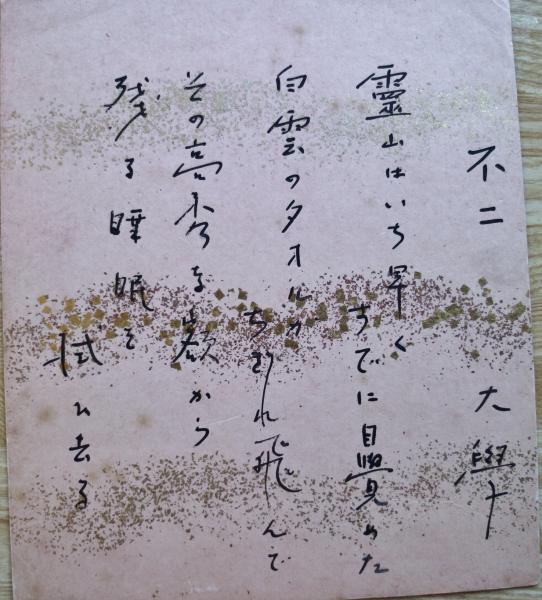 不二　大學
靈山はいち早く
すでに目覺めた
白雲のタオルが
ちぎれ飛んで
その高秀な額から
残る睡眠を
拭ひ去る